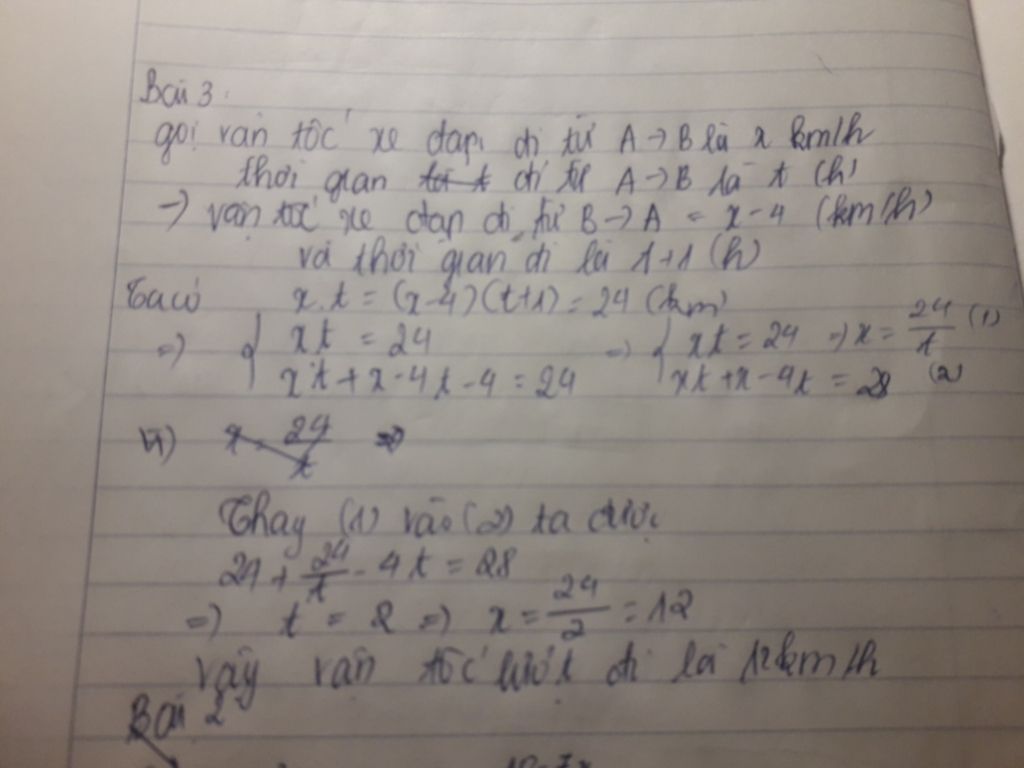 Bài 3:
gọi vận tốc xe đạp đi từ A → B là x km/h
thời gian đi từ A → B là t (h)
→ vận tốc xe đạp đi từ B → A = x - 4 (km/h)
và thời gian đi là t+1 (h)
Ta có x.t = (x-4)(t+1) = 24 (km)
=> { xt = 24 => { xt = 24 => x = 24/t (1)
xt + x - 4t - 4 = 24 xt + x - 4t = 28 (2)
x = 24/t =>
Thay (1) vào (2) ta được
24 + 24/t - 4t = 28
=> t = 2 => x = 24/2 = 12
vậy vận tốc lượt đi là 12km/h
Bài 2